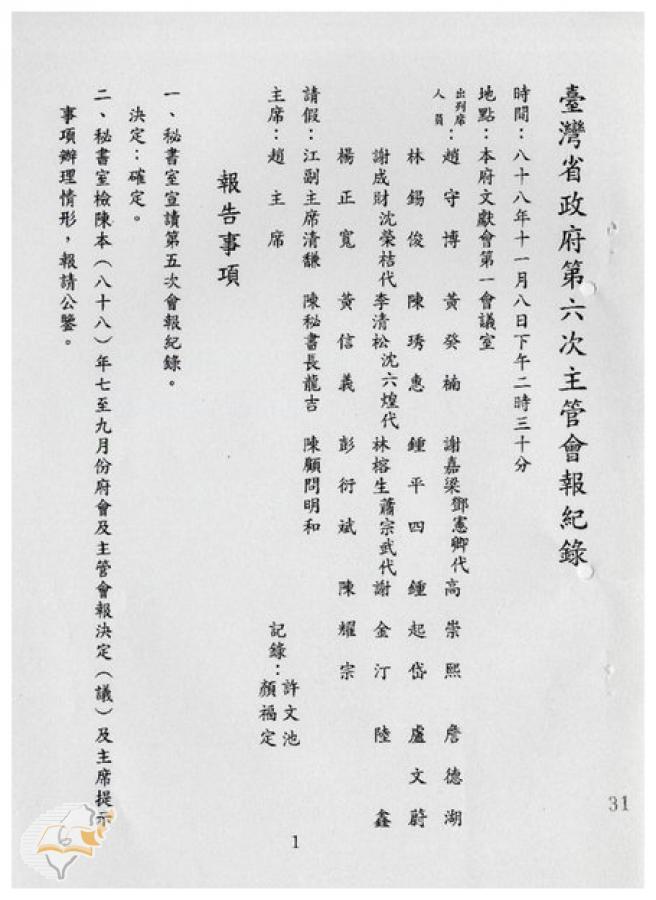 臺灣省政府第六次主管會報紀錄
時間：八十八年十一月八日下午二時三十分
地點：本府文獻會第一會議室
出列席人員：趙守博 黃癸楠 謝嘉梁鄧憲卿代 高崇熙 詹德湖
林錫俊 陳琇惠 鍾平四 鍾起岱 盧文蔚
謝成財沈榮桔代 李清松沈六煌代 林榕生蕭宗武代 謝金汀 陸鑫
楊正寬 黃信義 彭衍斌 陳耀宗
請假：江副主席清馦 陳秘書長龍吉 陳顧問明和
主席：趙主席
記錄：許文池
顏福定
報告事項
一、秘書室宣讀第五次會報紀錄。
決定：確定。
二、秘書室檢陳本（八十八）年七至九月份府會及主管會報決定（議）及主席提示
事項辦理情形，報請公鑒。
31
1